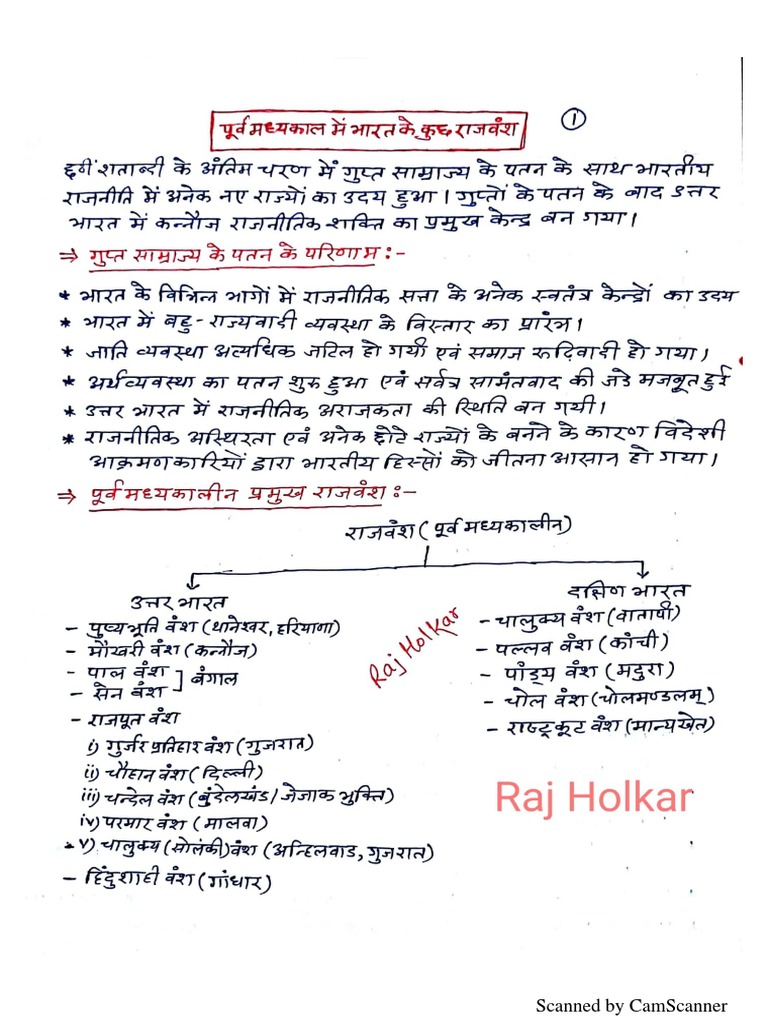 पूर्व मध्यकाल में भारत के कुछ राजवंश
1
छठीं शताब्दी के अंतिम चरण में गुप्त साम्राज्य के पतन के साथ भारतीय
राजनीति में अनेक नए राज्यों का उदय हुआ। गुप्तों के पतन के बाद उत्तर
भारत में कन्नौज राजनीतिक शक्ति का प्रमुख केन्द्र बन गया।
⇒ गुप्त साम्राज्य के पतन के परिणाम :-
* भारत के विभिन्न भागों में राजनीतिक सत्ता के अनेक स्वतंत्र केन्द्रों का उदय
* भारत में बहु-राज्यवादी व्यवस्था के विस्तार का प्रारंभ।
* जाति व्यवस्था अत्यधिक जटिल हो गयी एवं समाज रूढिवादी हो गया।
* अर्थव्यवस्था का पतन शुरू हुआ एवं सर्वत्र सामंतवाद की जडे मजबूत हुई
* उत्तर भारत में राजनीतिक अराजकता की स्थिति बन गयी।
* राजनीतिक अस्थिरता एवं अनेक छोटे राज्यों के बनने के कारण विदेशी
आक्रमणकारियों द्वारा भारतीय हिस्सों को जीतना आसान हो गया।
⇒ पूर्व मध्यकालीन प्रमुख राजवंश :-
राजवंश (पूर्व मध्यकालीन)
उत्तर भारत
- पुष्यभूति वंश (थानेश्वर, हरियाणा)
- मौखरी वंश (कन्नौज)
- पाल वंश
- सेन वंश ] बंगाल
- राजपूत वंश
i) गुर्जर प्रतिहार वंश (गुजरात)
ii) चौहान वंश (दिल्ली)
iii) चन्देल वंश (बुंदेलखंड/जेजाक भुक्ति)
iv) परमार वंश (मालवा)
v) चालुक्य (सोलंकी) वंश (अन्हिलवाड, गुजरात)
- हिंदुशाही वंश (गांधार)
दक्षिण भारत
- चालुक्य वंश (वातापी)
- पल्लव वंश (कांची)
- पांड्य वंश (मदुरा)
- चोल वंश (चोलमण्डलम्)
- राष्ट्रकूट वंश (मान्यखेत)
Raj Holkar
Raj Holkar
Scanned by CamScanner